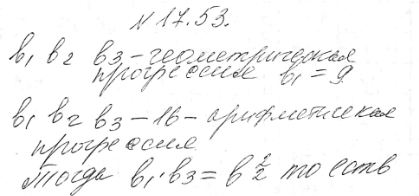 № 17.53.
b₁ b₂ b₃ - геометрическая
прогрессия b₁ = 9
b₁ b₂ b₃ - 16 - арифметическая
прогрессия
Тогда b₁·b₃ = b₂² то есть